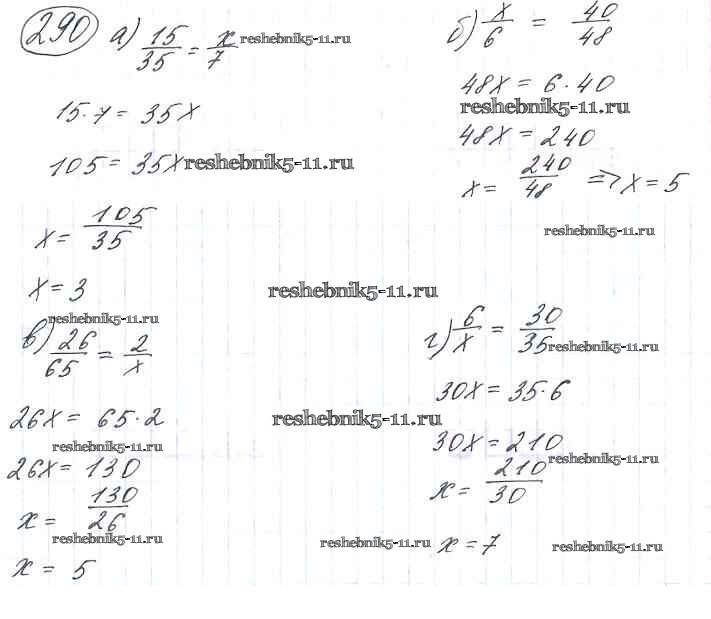 290 а) 15/35 = x/7 reshebnik5-11.ru
15·7 = 35x
105 = 35x reshebnik5-11.ru
x = 105/35
x = 3
б) x/6 = 40/48
48x = 6·40
reshebnik5-11.ru
48x = 240
x = 240/48 => x = 5
reshebnik5-11.ru
reshebnik5-11.ru
reshebnik5-11.ru
в) 26/65 = 2/x
26x = 65·2
reshebnik5-11.ru
reshebnik5-11.ru
26x = 130
x = 130/26
reshebnik5-11.ru
x = 5
г) 6/x = 30/35 reshebnik5-11.ru
30x = 35·6
30x = 210
reshebnik5-11.ru
x = 210/30
reshebnik5-11.ru
x = 7
reshebnik5-11.ru